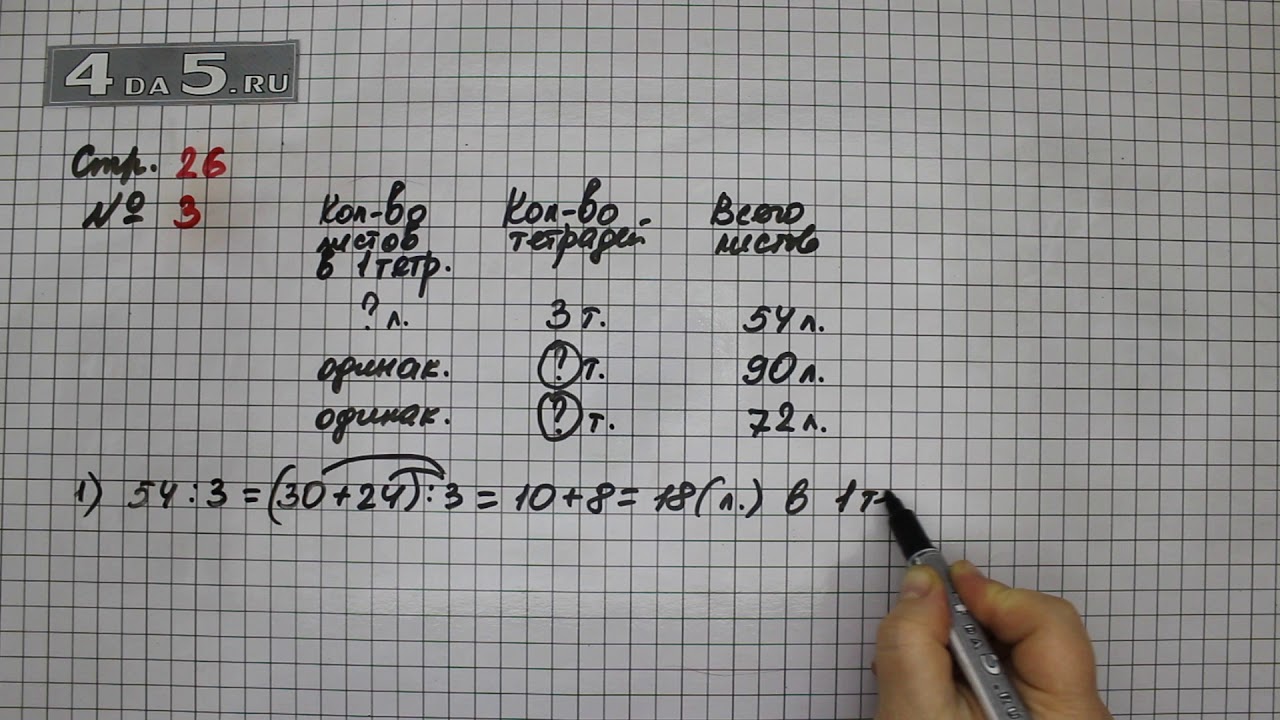 4 DA 5.RU
Стр. 26
№ 3
Кол-во Кол-во Всего
листов тетрадей листов
в 1 тетр.
? л. 3 т. 54 л.
одинак. ? т. 90 л.
одинак. ? т. 72 л.
1) 54 : 3 = (30 + 24) : 3 = 10 + 8 = 18 (л.) в 1 т